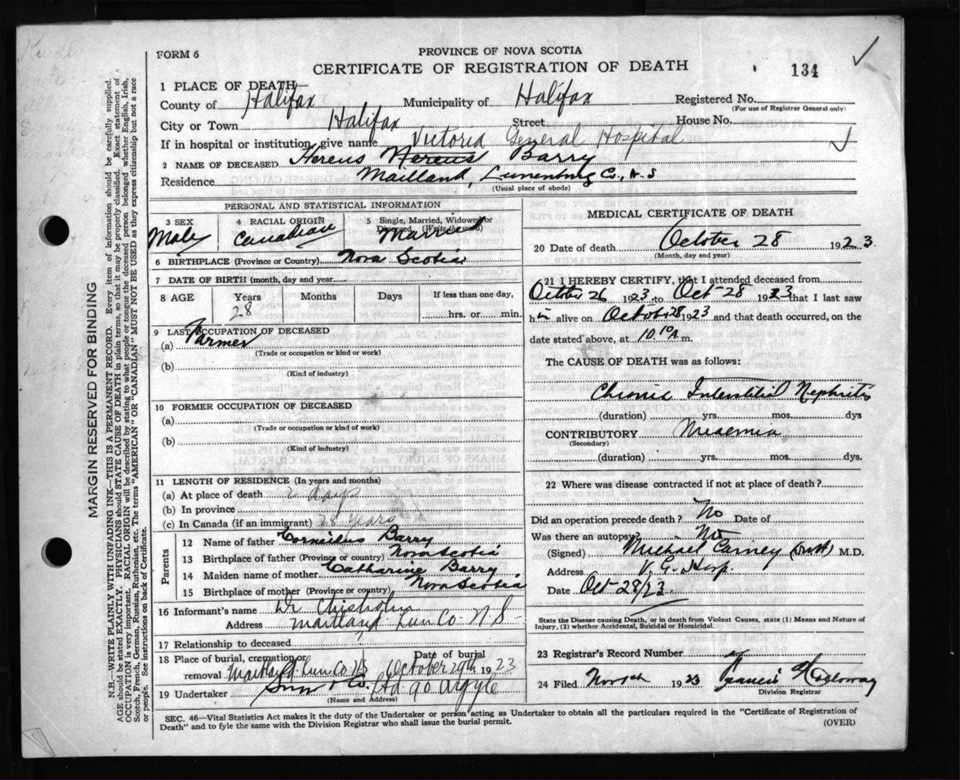 FORM 6
PROVINCE OF NOVA SCOTIA
CERTIFICATE OF REGISTRATION OF DEATH
134
1 PLACE OF DEATH
County of Halifax Municipality of Halifax Registered No.
(For use of Registrar General only)
City or Town Halifax Street House No.
If in hospital or institution, give name Victoria General Hospital
2 NAME OF DECEASED Hereus Nereus Barry
Residence Maitland, Lunenburg Co., N.S
(Usual place of abode)
PERSONAL AND STATISTICAL INFORMATION
3 SEX Male
4 RACIAL ORIGIN Canadian
5 Single, Married, Widowed or Divorced (Write the word) Married
6 BIRTHPLACE (Province or Country) Nova Scotia
7 DATE OF BIRTH (month, day and year)
8 AGE Years 28 Months Days If less than one day, hrs. or min.
9 LAST OCCUPATION OF DECEASED
(a) Farmer
(Trade or occupation or kind or work)
(b)
(Kind of industry)
10 FORMER OCCUPATION OF DECEASED
(a)
(Trade or occupation or kind or work)
(b)
(Kind of industry)
11 LENGTH OF RESIDENCE (In years and months)
(a) At place of death 2 days
(b) In province
(c) In Canada (if an immigrant) 28 years
Parents
12 Name of father Cornelius Barry
13 Birthplace of father (Province or country) Nova Scotia
14 Maiden name of mother Catharine Barry
15 Birthplace of mother (Province or country) Nova Scotia
16 Informant's name Dr Chisholm
Address Maitland Lun Co N S
17 Relationship to deceased
18 Place of burial, cremation or removal Maitland Lun Co NS Date of burial October 29th 1923
19 Undertaker Snow & Co. Argyle
(Name and Address)
MEDICAL CERTIFICATE OF DEATH
20 Date of death October 28 1923
(Month, day and year)
21 I HEREBY CERTIFY, that I attended deceased from
October 26 1923 to Oct 28 1923 that I last saw
him alive on October 28 1923 and that death occurred, on the
date stated above, at 10.10 m.
The CAUSE OF DEATH was as follows:
Chronic Interstitial Nephritis
(duration) yrs. mos. dys
CONTRIBUTORY
(Secondary)
(duration) yrs. mos. dys.
22 Where was disease contracted if not at place of death?
Did an operation precede death? No Date of
Was there an autopsy No
(Signed) Michael Carney M.D.
Address V. G. Hosp.
Date Oct 28/23.
State the Disease causing Death, or in death from Violent Causes, state (1) Means and Nature of
Injury, (2) whether Accidental, Suicidal or Homicidal.
23 Registrar's Record Number
24 Filed 1923 Francis
Division Registrar
SEC. 46—Vital Statistics Act makes it the duty of the Undertaker or person acting as Undertaker to obtain all the particulars required in the "Certificate of Registration of
Death" and to fyle the same with the Division Registrar who shall issue the burial permit.
(OVER)
MARGIN RESERVED FOR BINDING
N.B.—WRITE PLAINLY WITH UNFADING INK—THIS IS A PERMANENT RECORD. Every item of information should be carefully supplied.
AGE should be stated EXACTLY. PHYSICIANS should STATE CAUSE OF DEATH in plain terms, so that it may be properly classified. Exact statement of
OCCUPATION is very important. RACIAL ORIGIN will be described by stating to what people or tongue the deceased person belonged whether English, Irish,
Scotch, French, German, Russian, Ruthenian, etc. The terms "AMERICAN" OR "CANADIAN" MUST NOT BE USED as they express citizenship but not a race
or people. See instructions on back of Certificate.